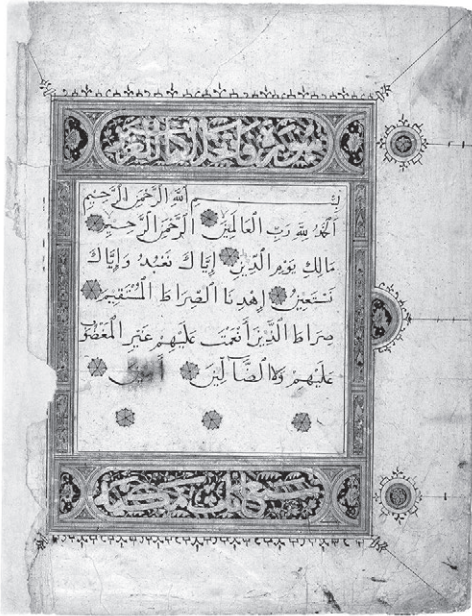 سورة فاتحة الكتاب
بسم الله الرحمن الرحيم
الحمد لله رب العالمين الرحمن الرحيم
مالك يوم الدين إياك نعبد وإياك
نستعين اهدنا الصراط المستقيم
صراط الذين أنعمت عليهم غير المغضوب
عليهم ولا الضالين آمين